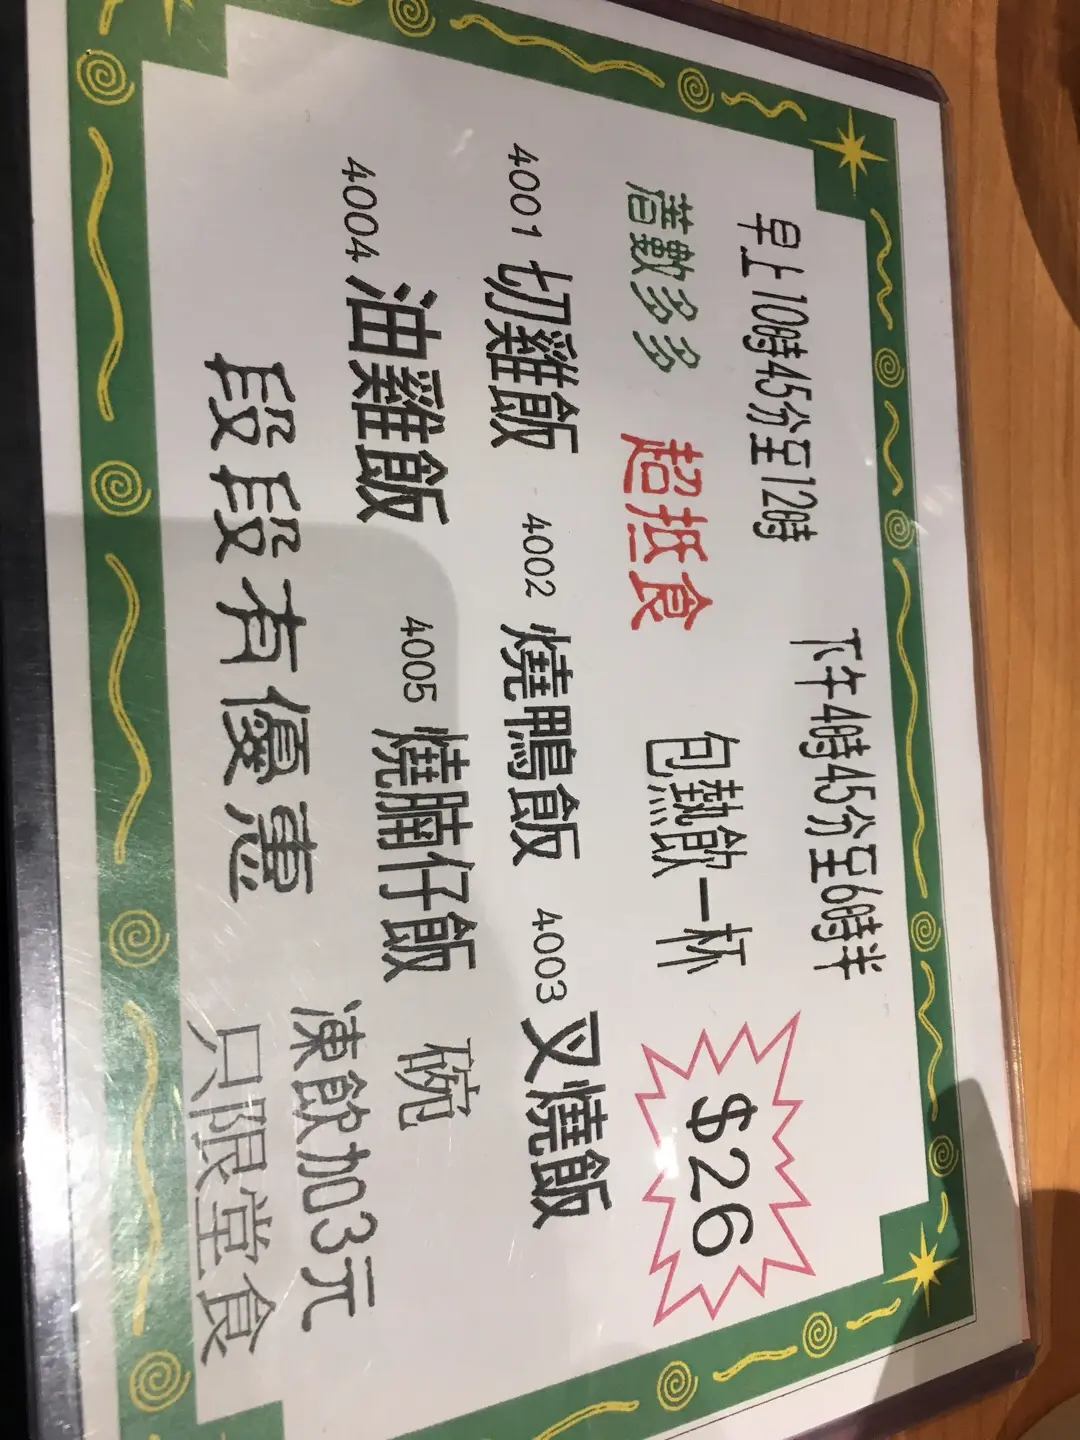 早上10時45分至12時 下午4時45分至6時半
著數多多 超抵食 包熱飲一杯 $26
4001 切雞飯 4002 燒鴨飯 4003 叉燒飯
4004 油雞飯 4005 燒腩仔飯 碗
段段有優惠 凍飲加03元
只限堂食